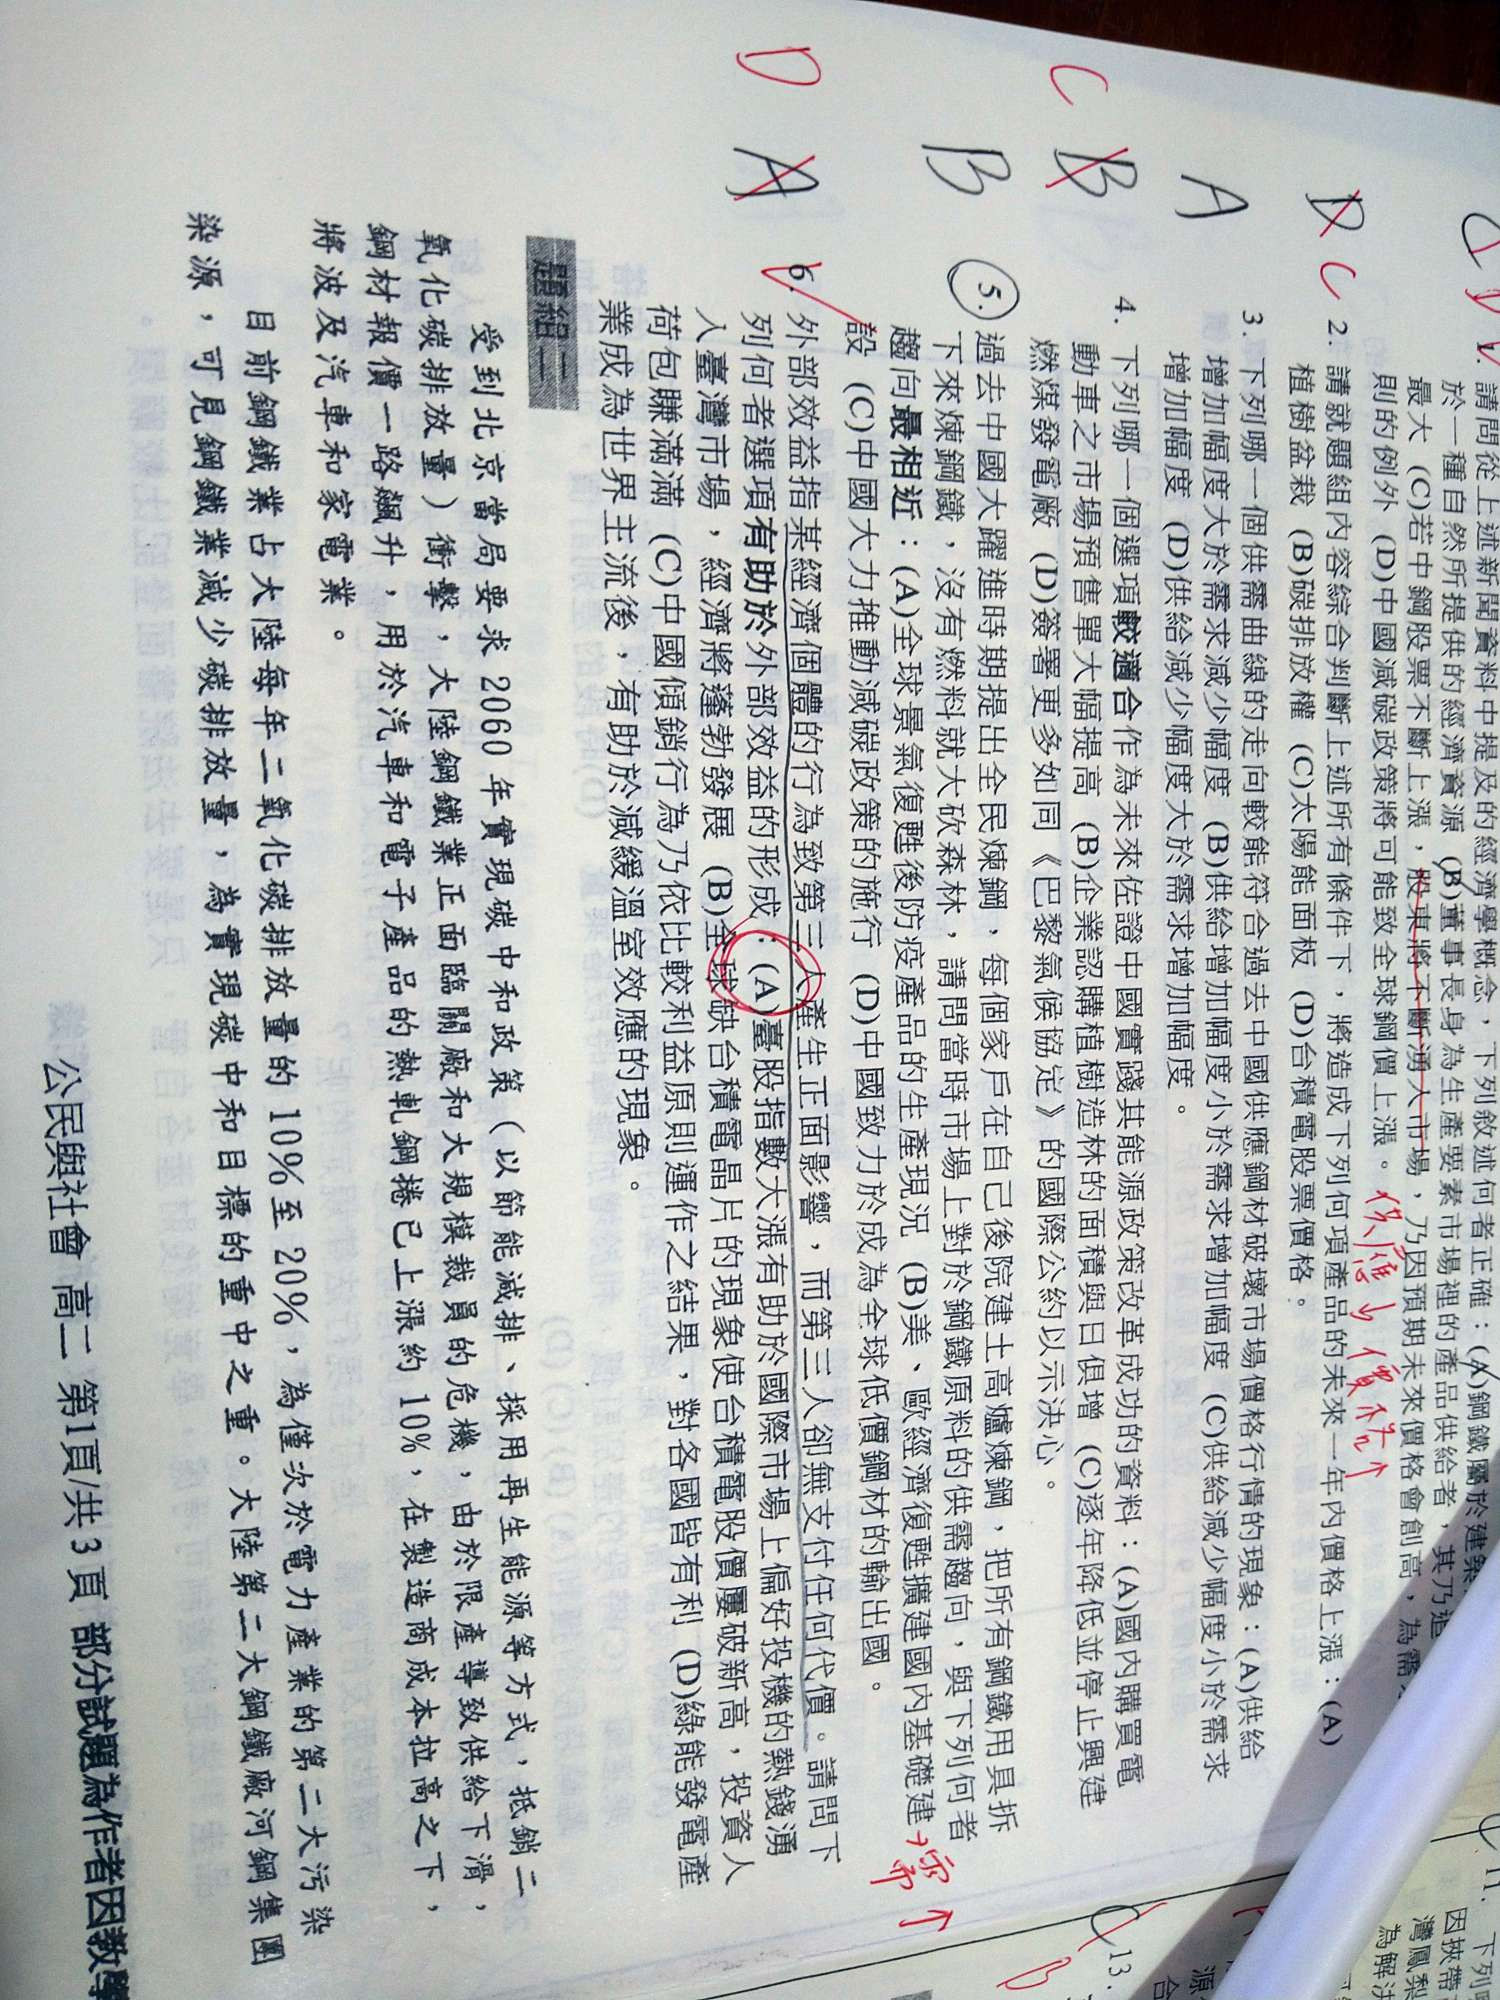 請問從上述新聞資料中提及的經濟學概念，下列敘述何者正確：(A)鋼鐵屬於建築
於一種自然所提供的經濟資源 (B)董事長身為生產要素市場裡的產品供給者，其乃追
最大 (C)若中鋼股票不斷上漲，股東將不斷湧入市場，乃因預期未來價格會創高，為需
則的例外 (D)中國減碳政策將可能致全球鋼價上漲。供應↓價格↑
D C 2. 請就題組內容綜合判斷上述所有條件下，將造成下列何項產品的未來一年內價格上漲：(A)
植樹盆栽 (B)碳排放權 (C)太陽能面板 (D)台積電股票價格。
A 3. 下列哪一個供需曲線的走向較能符合過去中國供應鋼材破壞市場價格行情的現象：(A)供給
增加幅度大於需求減少幅度 (B)供給增加幅度小於需求增加幅度 (C)供給減少幅度小於需求
增加幅度 (D)供給減少幅度大於需求增加幅度。
C B 4. 下列哪一個選項較適合作為未來佐證中國實踐其能源政策改革成功的資料：(A)國內購買電
動車之市場預售單大幅提高 (B)企業認購植樹造林的面積與日俱增 (C)逐年降低並停止興建
燃煤發電廠 (D)簽署更多如同《巴黎氣候協定》的國際公約以示決心。
B 5. 過去中國大躍進時期提出全民煉鋼，每個家戶在自己後院建土高爐煉鋼，把所有鋼鐵用具拆
下來煉鋼鐵，沒有燃料就大砍森林，請問當時市場上對於鋼鐵原料的供需趨向，與下列何者
趨向最相近：(A)全球景氣復甦後防疫產品的生產現況 (B)美、歐經濟復甦擴建國內基礎建→需↑
設 (C)中國大力推動減碳政策的施行 (D)中國致力於成為全球低價鋼材的輸出國。
D A 6. 外部效益指某經濟個體的行為致第三人產生正面影響，而第三人卻無支付任何代價。請問下
列何者選項有助於外部效益的形成：(A)臺股指數大漲有助於國際市場上偏好投機的熱錢湧
入臺灣市場，經濟將蓬勃發展 (B)全球缺台積電晶片的現象使台積電股價屢破新高，投資人
荷包賺滿滿 (C)中國傾銷行為乃依比較利益原則運作之結果，對各國皆有利 (D)綠能發電產
業成為世界主流後，有助於減緩溫室效應的現象。
題組二
受到北京當局要求 2060 年實現碳中和政策（以節能減排、採用再生能源等方式，抵銷二
氧化碳排放量）衝擊，大陸鋼鐵業正面臨關廠和大規模裁員的危機，由於限產導致供給下滑，
鋼材報價一路飆升，用於汽車和電子產品的熱軋鋼捲已上漲約 10%，在製造商成本拉高之下，
將波及汽車和家電業。
目前鋼鐵業占大陸每年二氧化碳排放量的 10%至 20%，為僅次於電力產業的第二大污染
染源，可見鋼鐵業減少碳排放量，為實現碳中和目標的重中之重。大陸第二大鋼鐵廠河鋼集團
公民與社會 高二 第1頁/共3頁 部分試題為作者因教學
11. 下列
因挾帶
灣鳳梨
為解決
C B 13.
源
合